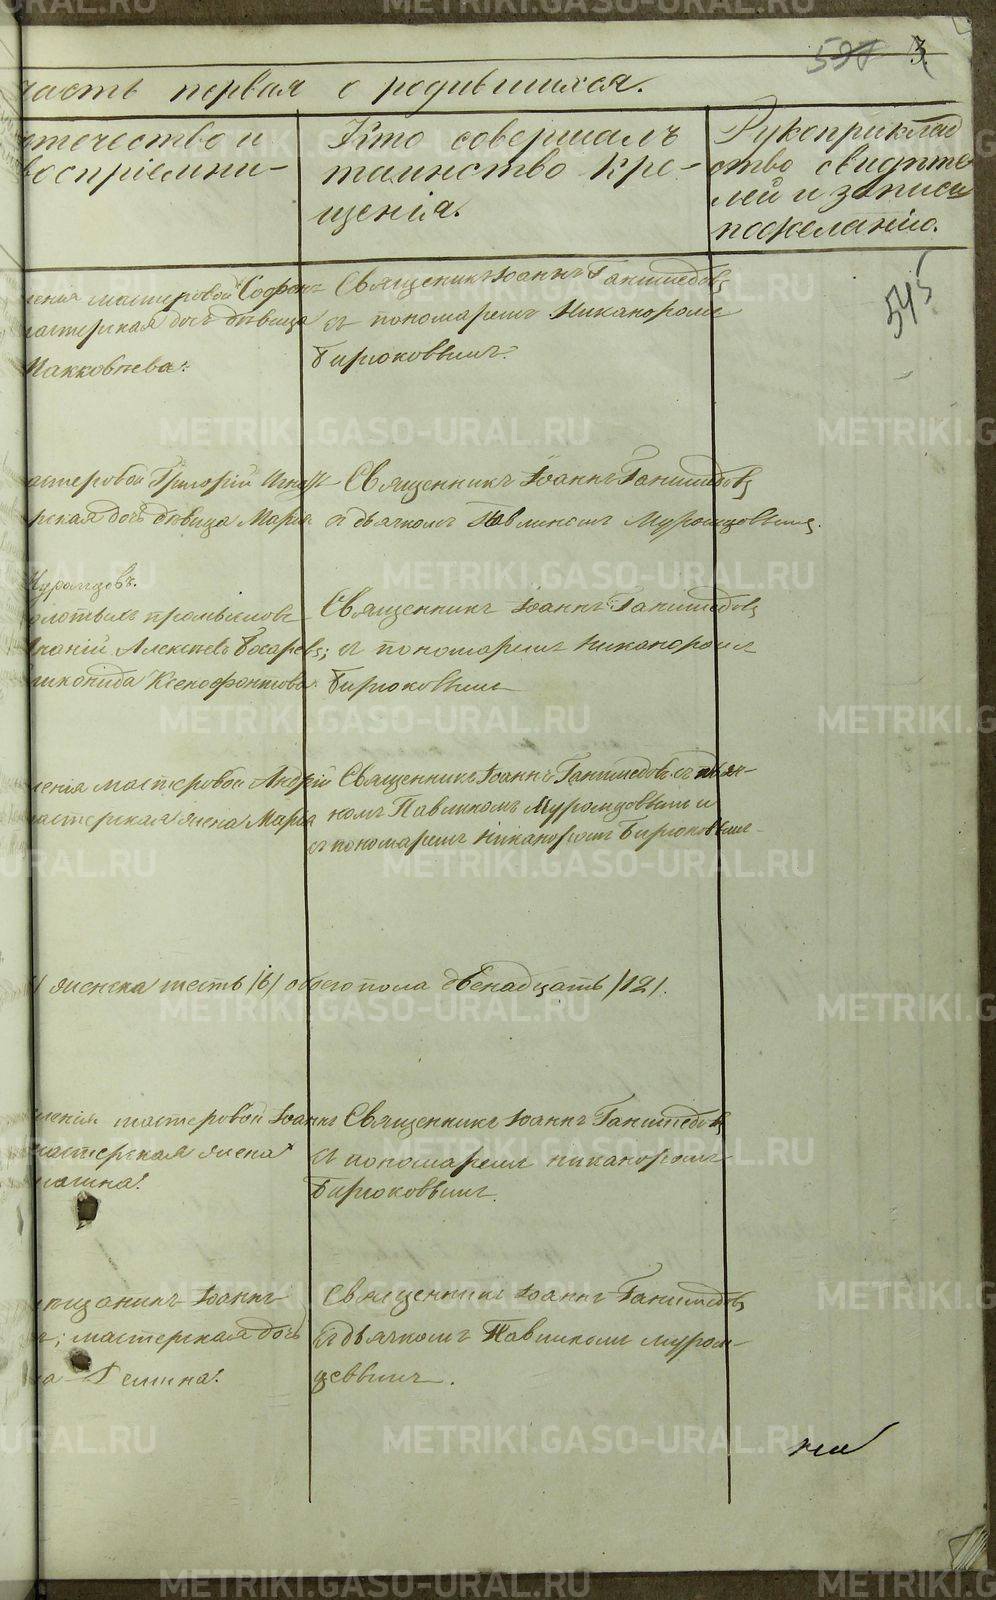 591 3.
часть первая о родившихся.
отечество и
воспріемни-
Кто совершалъ
таинство кре-
щенія.
Рукоприклад
ство свидѣте
лей и запись
пожеланію.
545
ленія мастеровой Софон
мастерская дочь дѣвица
Маккавѣева.
Священникъ Іоаннъ Ганимедовъ
съ пономаремъ Никаноромъ
Бирюковымъ.
мастеровой Григорій Игнат
дочь дѣвица Марія
Священникъ Іоаннъ Ганимедовъ
съ дьячкомъ Павлиномъ Муромцовымъ.
Муромцовъ.
золотыхъ промысловъ
Алексѣевъ Бочаровъ;
Ксенофонтова.
Священникъ Іоаннъ Ганимедовъ
съ пономаремъ Никаноромъ
Бирюковымъ
ленія мастеровой Андрей
мастерская жена Марѳа
Священникъ Іоаннъ Ганимедовъ съ дьяч-
комъ Павлиномъ Муромцовымъ и
съ пономаремъ Никаноромъ Бирюковымъ
женска шесть /6/ обоего пола двенадцать /12/.
ленія мастеровой Іоаннъ
мастерская жена
Священникъ Іоаннъ Ганимедовъ
съ пономаремъ Никаноромъ
Бирюковымъ.
Іоаннъ
мастерская дочь
Священникъ Іоаннъ Ганимедовъ
съ дьячкомъ Павлиномъ Муром-
цевымъ.
METRIKI.GASO-URAL.RU